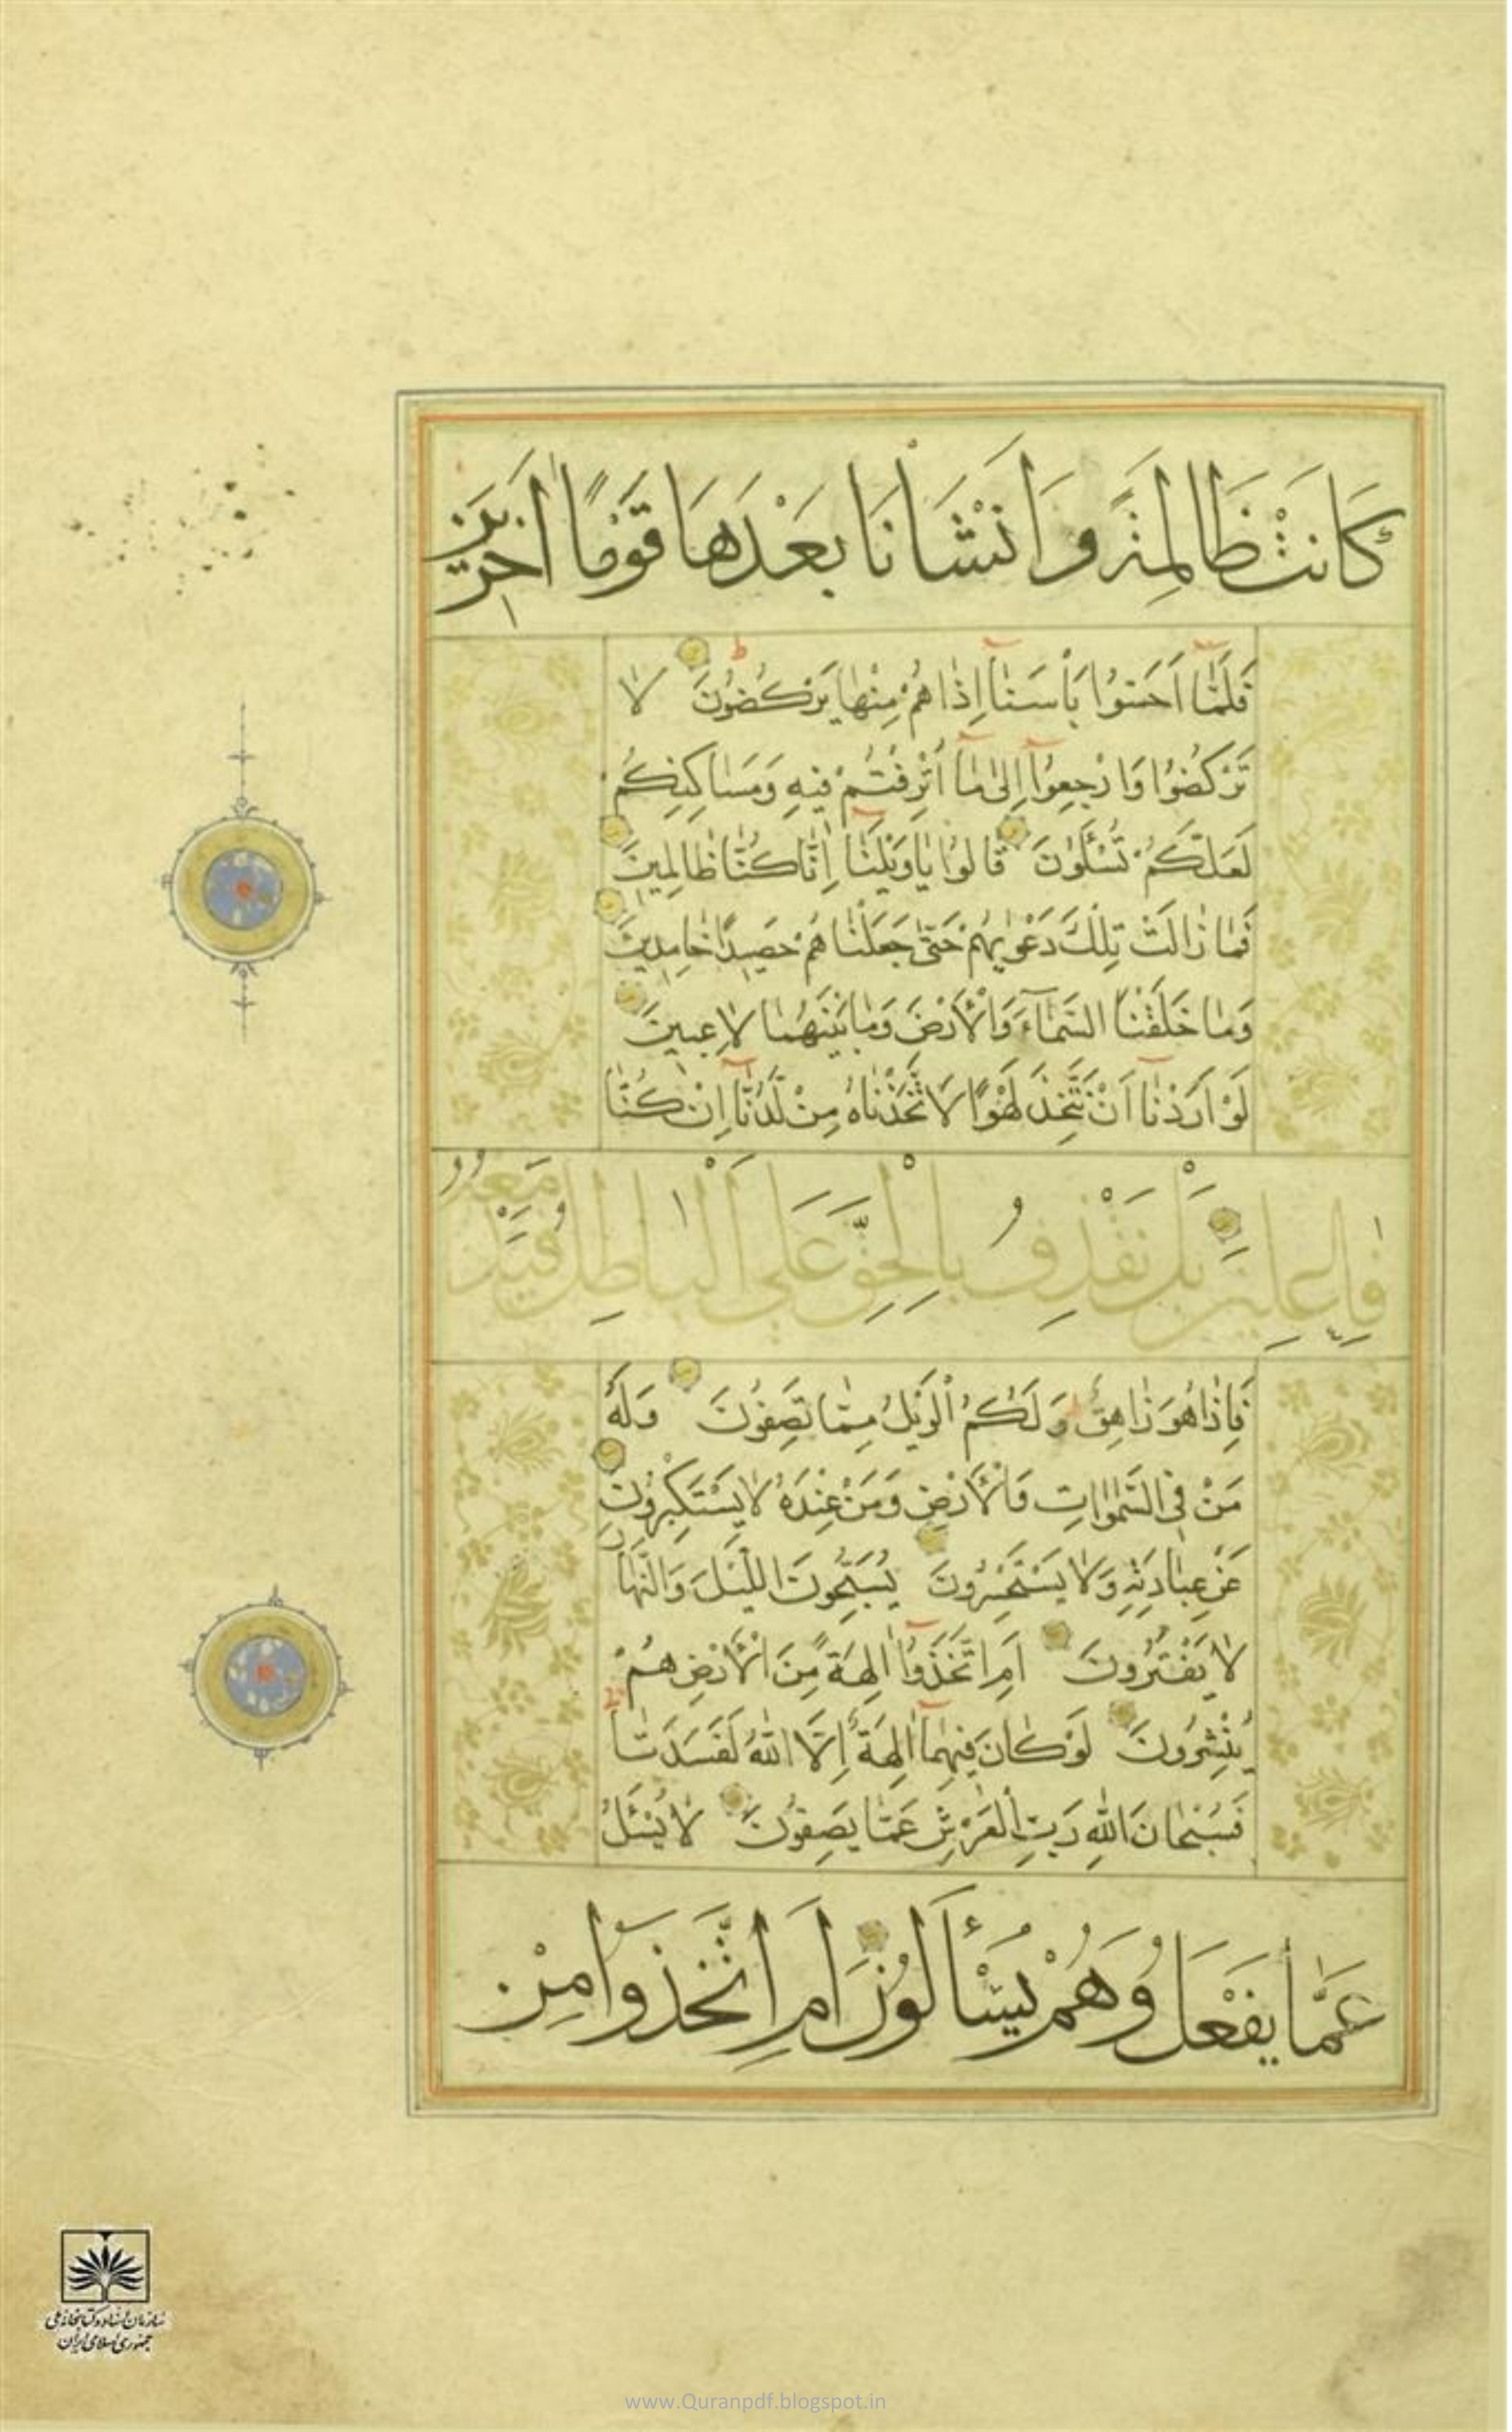 كَانَتْ ظَالِمَةً وَاَنْشَأْنَا بَعْدَهَا قَوْمًا اٰخَرِيْنَ
فَلَمَّا اَحَسُّوا بَأْسَنَا اِذَا هُمْ مِنْهَا يَرْكُضُونَ لَا
تَرْكُضُوا وَارْجِعُوا اِلٰى مَا اُتْرِفْتُمْ فِيهِ وَمَسَاكِنِكُمْ
لَعَلَّكُمْ تُسْـَٔلُونَ قَالُوا يَا وَيْلَنَا اِنَّا كُنَّا ظَالِمِينَ
فَمَا زَالَتْ تِلْكَ دَعْوٰيهُمْ حَتّٰى جَعَلْنَاهُمْ حَصِيدًا خَامِدِينَ
وَمَا خَلَقْنَا السَّمَآءَ وَالْاَرْضَ وَمَا بَيْنَهُمَا لَاعِبِينَ
لَوْ اَرَدْنَا اَنْ نَتَّخِذَ لَهْوًا لَاتَّخَذْنَاهُ مِنْ لَدُنَّا اِنْ كُنَّا
فَاعِلِينَ بَلْ نَقْذِفُ بِالْحَقِّ عَلَى الْبَاطِلِ فَيَدْمَغُهُ
فَاِذَا هُوَ زَاهِقٌ وَلَكُمُ الْوَيْلُ مِمَّا تَصِفُونَ وَلَهُ
مَنْ فِي السَّمٰوَاتِ وَالْاَرْضِ وَمَنْ عِنْدَهُ لَا يَسْتَكْبِرُونَ
عَنْ عِبَادَتِهِ وَلَا يَسْتَحْسِرُونَ يُسَبِّحُونَ اللَّيْلَ وَالنَّهَارَ
لَا يَفْتُرُونَ اَمِ اتَّخَذُوا اٰلِهَةً مِنَ الْاَرْضِ هُمْ
يُنْشِرُونَ لَوْ كَانَ فِيهِمَا اٰلِهَةٌ اِلَّا اللّٰهُ لَفَسَدَتَا
فَسُبْحَانَ اللّٰهِ رَبِّ الْعَرْشِ عَمَّا يَصِفُونَ لَا يُسْـَٔلُ
عَمَّا يَفْعَلُ وَهُمْ يُسْأَلُونَ اَمِ اتَّخَذُوا مِنْ
سازمان اسناد و کتابخانه ملی
جمهوری اسلامی ایران
www.Quranpdf.blogspot.in